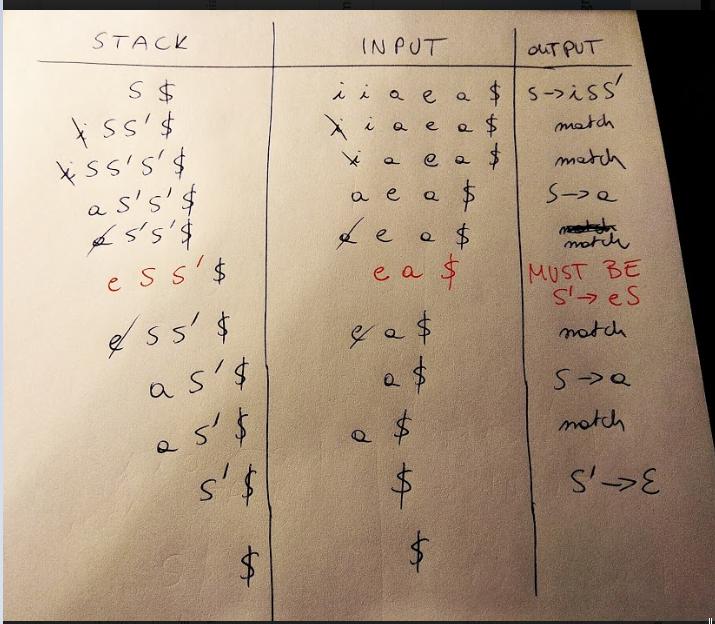 STACK INPUT OUTPUT
S $ i i a e a $ S→iSS'
i S S' $ i i a e a $ match
i S S' S' $ i a e a $ match
a S' S' $ a e a $ S→a
a S' S' $ a e a $ match
match
e S S' $ e a $ MUST BE
S'→ eS
e S S' $ e a $ match
a S' $ a $ S→a
a S' $ a $ match
S' $ $ S'→Ɛ
$ $